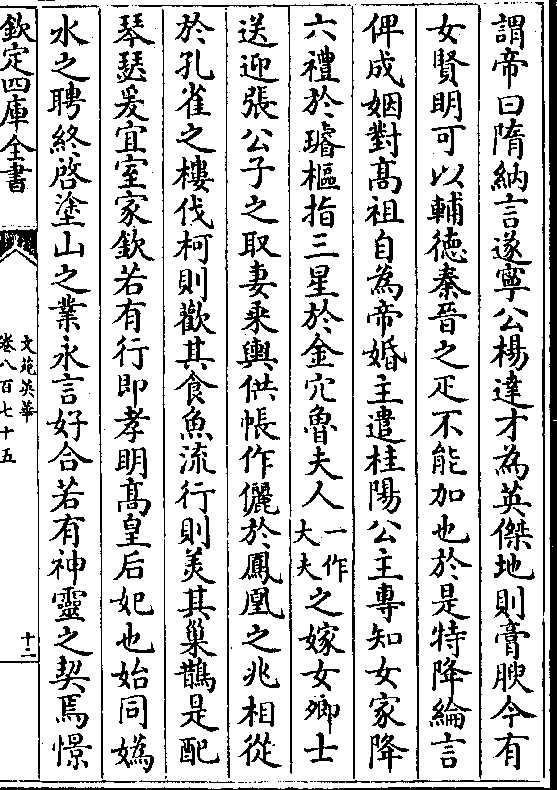 謂帝曰隋納言遂寧公楊達才為英傑地則膏腴今有
女賢明可以輔德秦晉之疋不能加也於是特降綸言
俾成姻對高祖自為帝婚主遣桂陽公主專知女家降
六禮於璿樞指三星於金穴魯夫人一作大夫之嫁女卿士
送迎張公子之取妻乘輿供帳作儷於鳳凰之兆相從
於孔雀之樓伐柯則歡其食魚流行則美其巢鵲是配
琴瑟爰宜室家欽若有行即孝明高皇后妃也始同媯
水之聘終啓塗山之業永言好合若有神靈之契焉憬
欽定四庫全書
文苑英華
卷八百七十五
十二